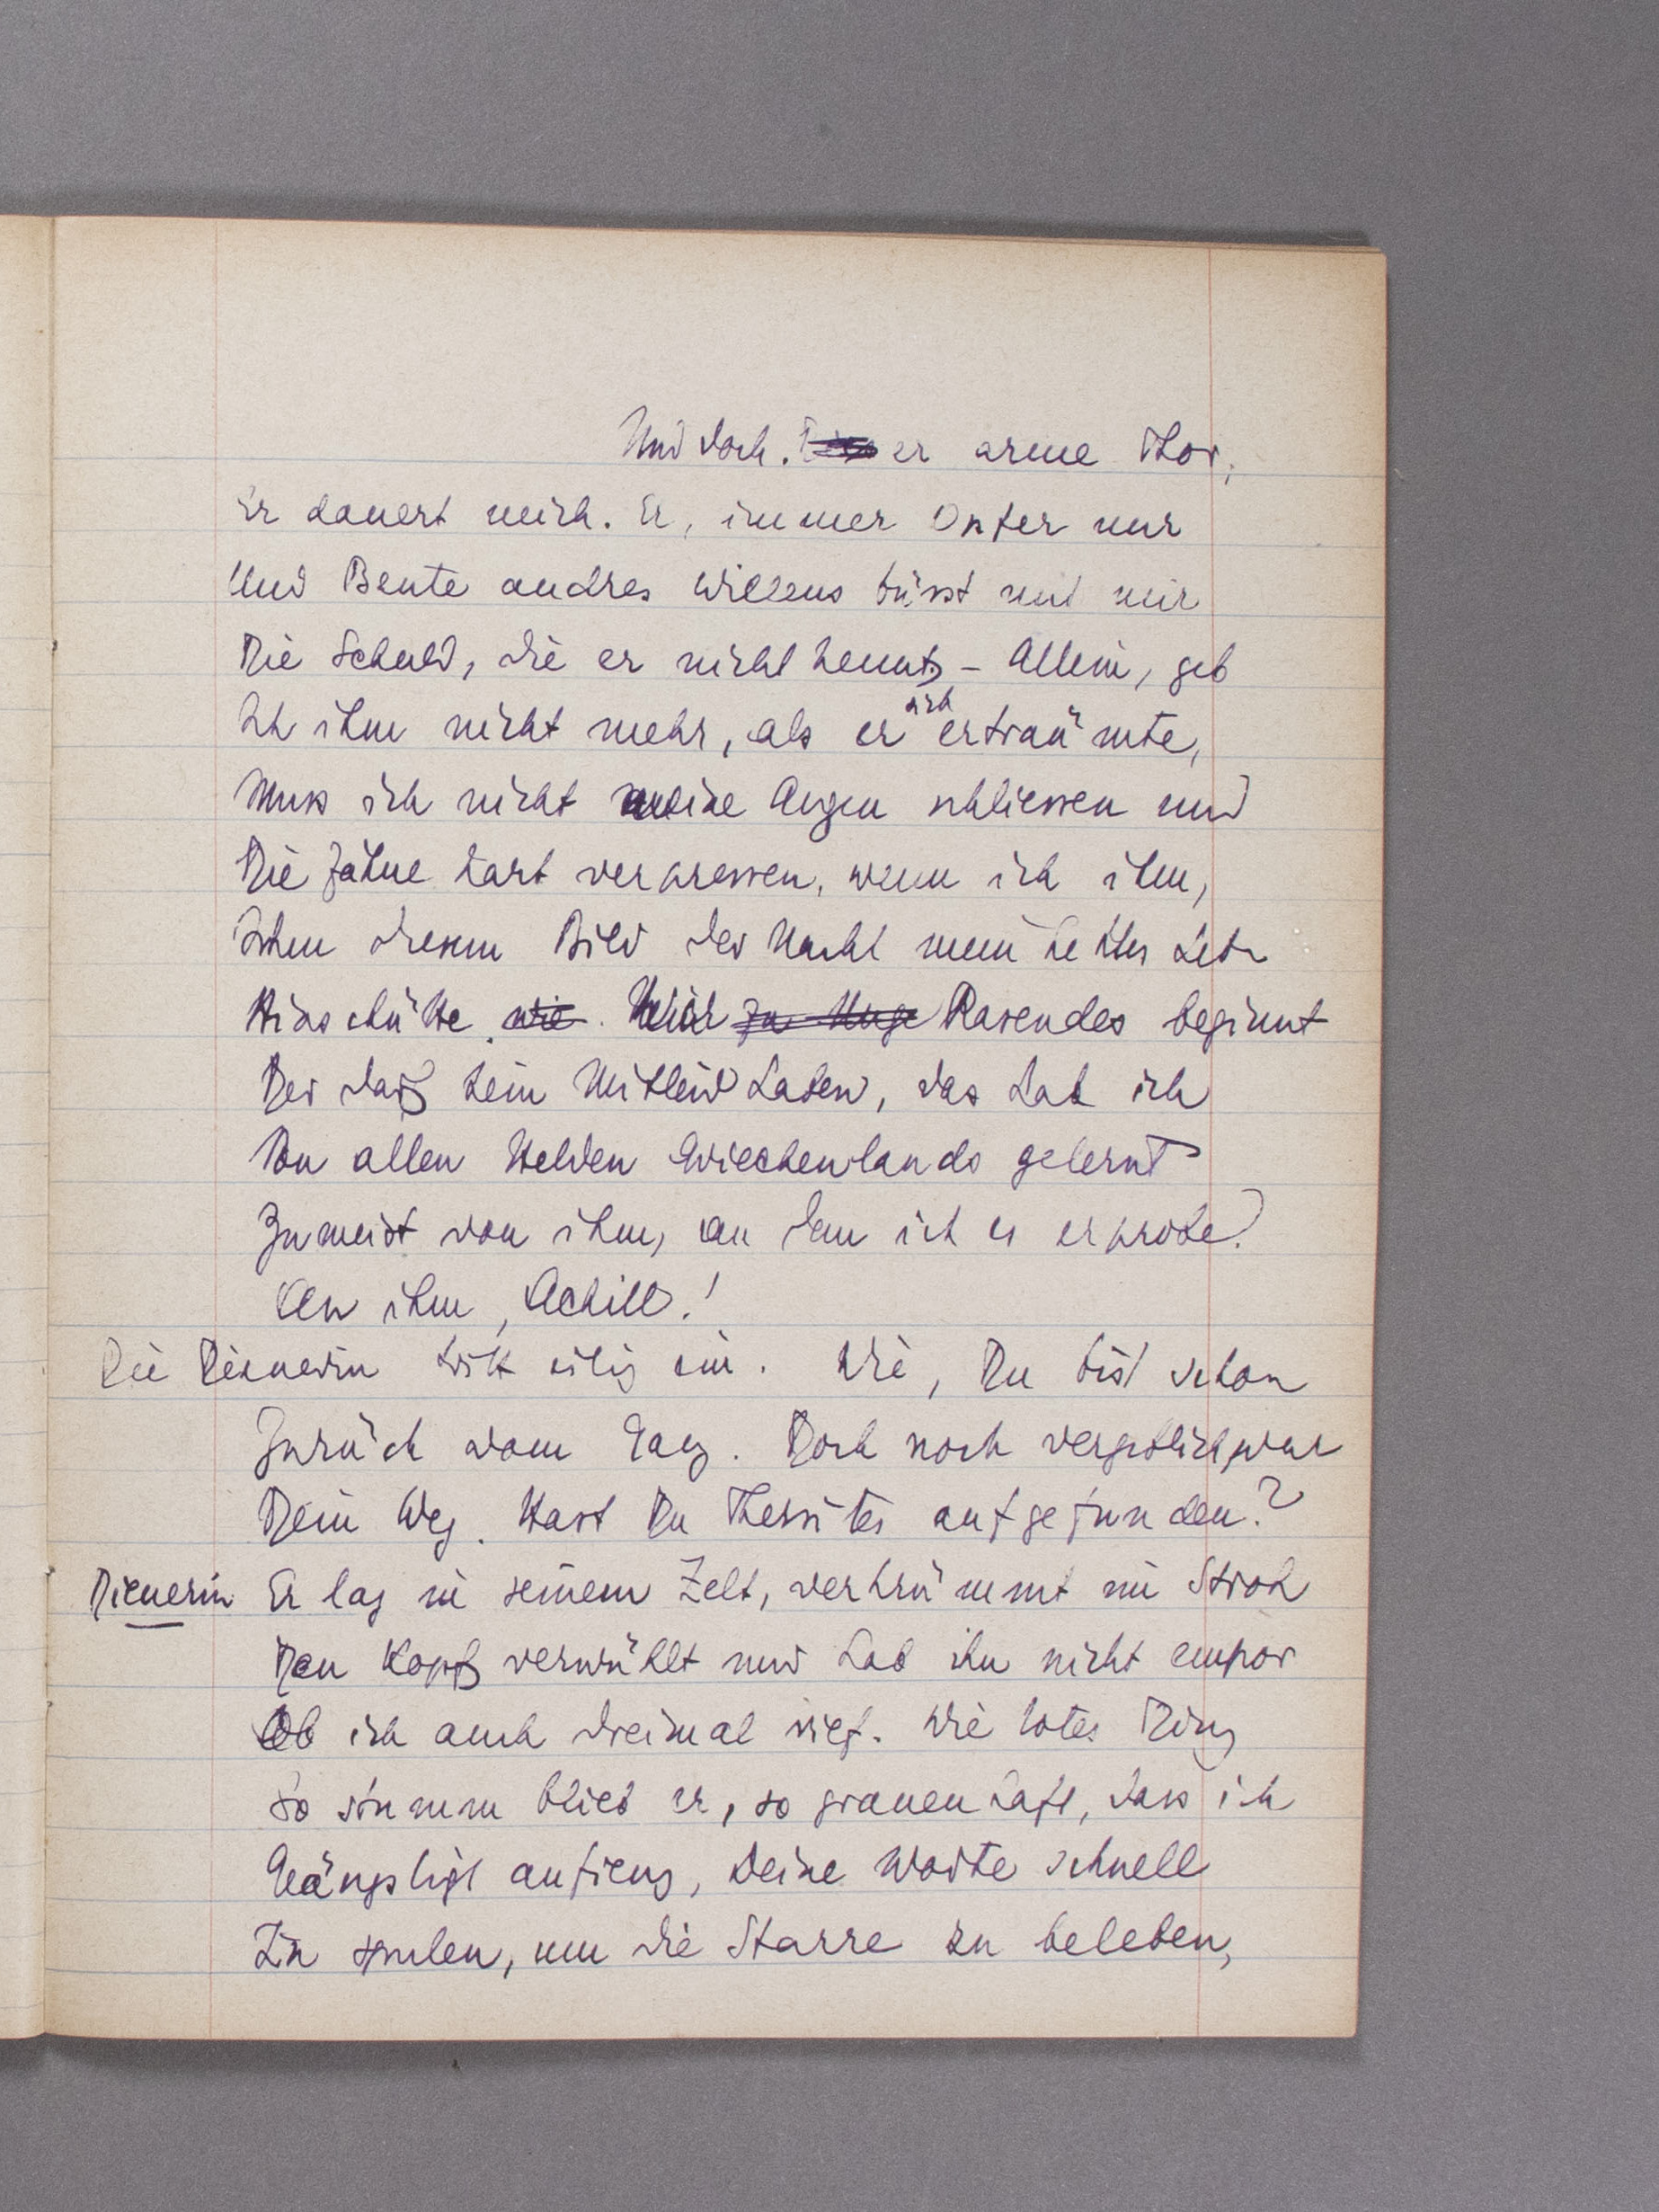 Und doch. er arme Thor,
Er dauert mich. Er, immer Opfer nur
Und Beute andres Willens büsst mit mir
Die Schuld, die er nicht kennt, – Allein, geb
Ich ihm nicht mehr, als er sich erträumte,
Muss ich nicht meine Augen schliessen und
Die Zähne hart verpressen, wenn ich ihm,
Ihm diesem Bild der Nacht mein helles
Hinschütte. wie. Wer zu Rasendes beginnt
Der darf kein Mitleid haben, das hab ich
Von allen Helden Griechenlands gelernt
Zumeist von ihm, an dem ich es erprobe!
An ihm, Achill!
Die Dienerin tritt eilig ein. Wie, Du bist schon
Zurück vom Gang. Doch noch vergeblich war
Dein Weg. Hast Du Thersites aufgefunden?
Dienerin Er lag in seinem Zelt, verkrümmt im Stroh
Den Kopf verwühlt und hob ihn nicht empor
Ob ich auch dreimal rief. Wie totes Ding
So stumm blieb er, so grauenhaft, dass ich
Geängstigt anfieng, Deine Worte schnell
Zu spulen, um die Starre zu beleben,